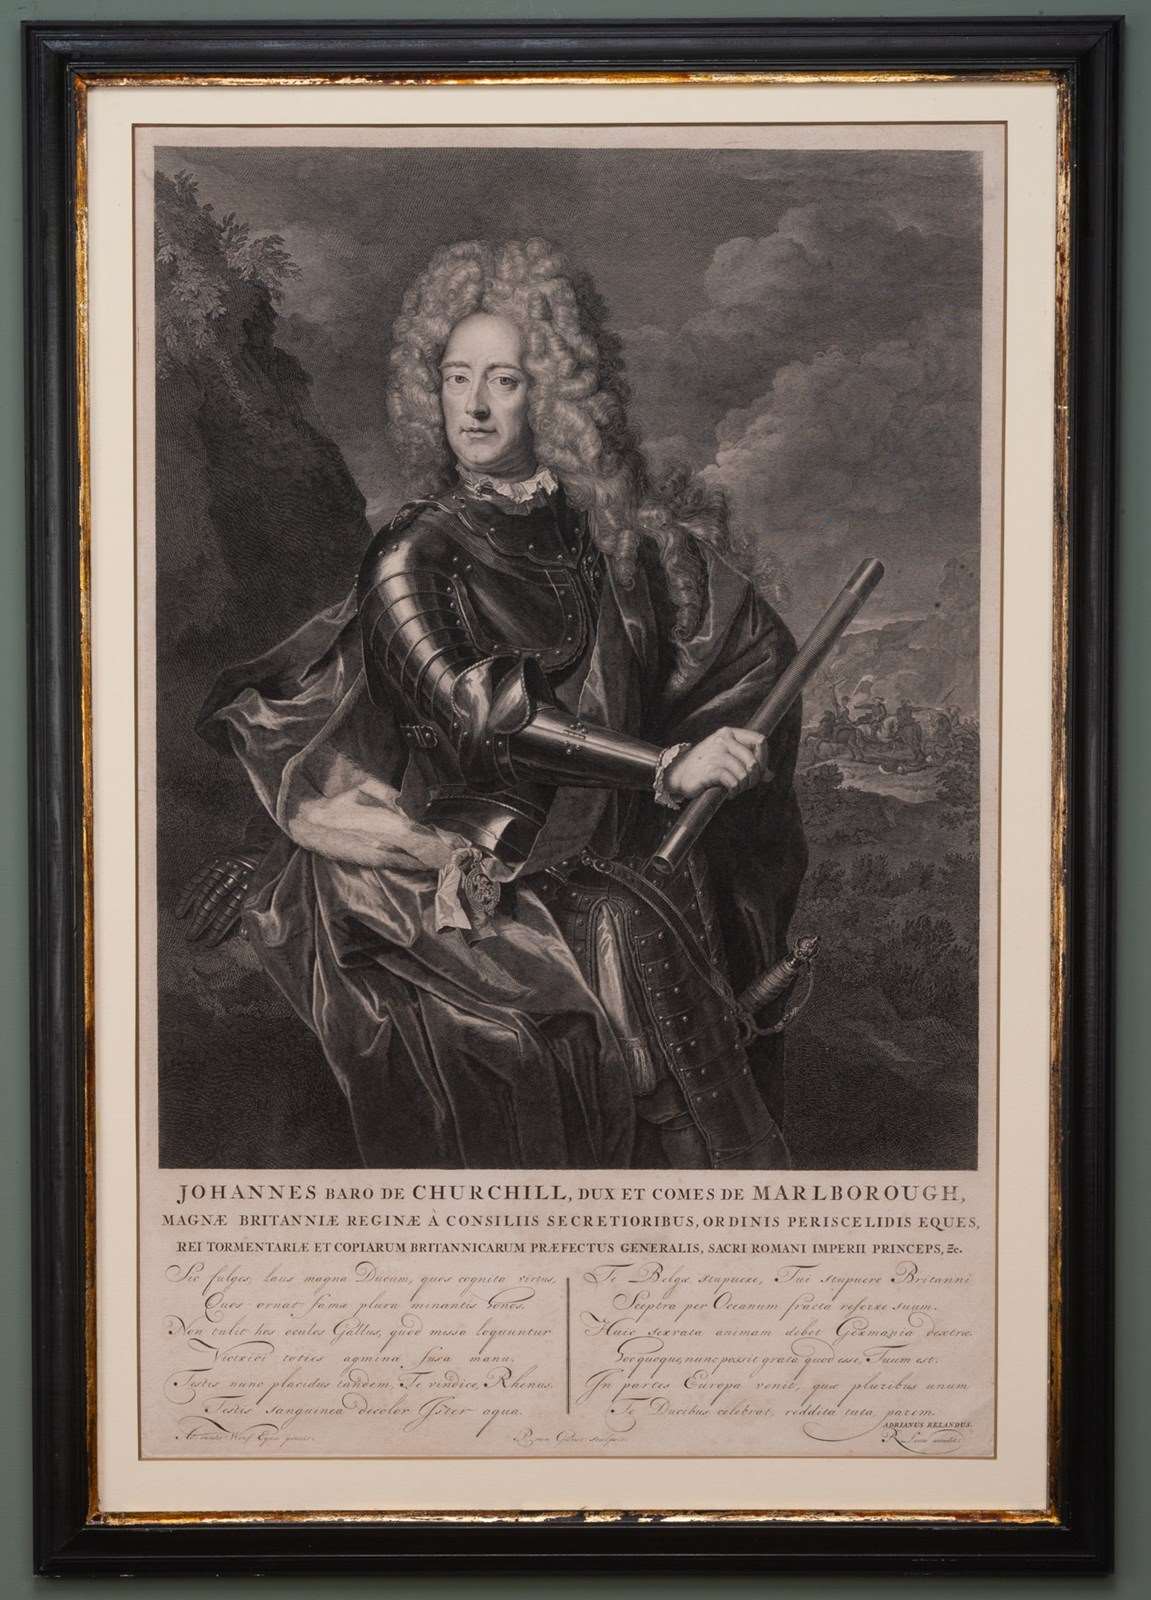 JOHANNES BARO DE CHURCHILL, DUX ET COMES DE MARLBOROUGH,
MAGNÆ BRITANNIÆ REGINÆ À CONSILIIS SECRETIORIBUS, ORDINIS PERISCELIDIS EQUES,
REI TORMENTARIÆ ET COPIARUM BRITANNICARUM PRÆFECTUS GENERALIS, SACRI ROMANI IMPERII PRINCEPS, &c.
Sic fulges, laus magna Ducum, quos cognita virtus,
Quos ornat fama plura minantis honos.
Non tulit hos oculos Gallus, quod missa loquuntur
Victrici toties agmina fusa manu.
Testis nunc placidus tandem, Te vindice, Rhenus.
Testis sanguinea decolor Ister aqua.
Te Belgæ stupuere, Tui stupuere Britanni
Sceptra per Oceanum fracta referre suum.
Huic servata animam debet Germania dextræ.
Hoc quoque, nunc possit grata quod esse, Tuum est.
In partes Europa venit, quæ pluribus unum
Te Ducibus celebrat, reddita tuta parem.
ADRIANUS RELANDUS.
Adr. vander Werf Eques pinxit.
P. van Gunst sculpsit.